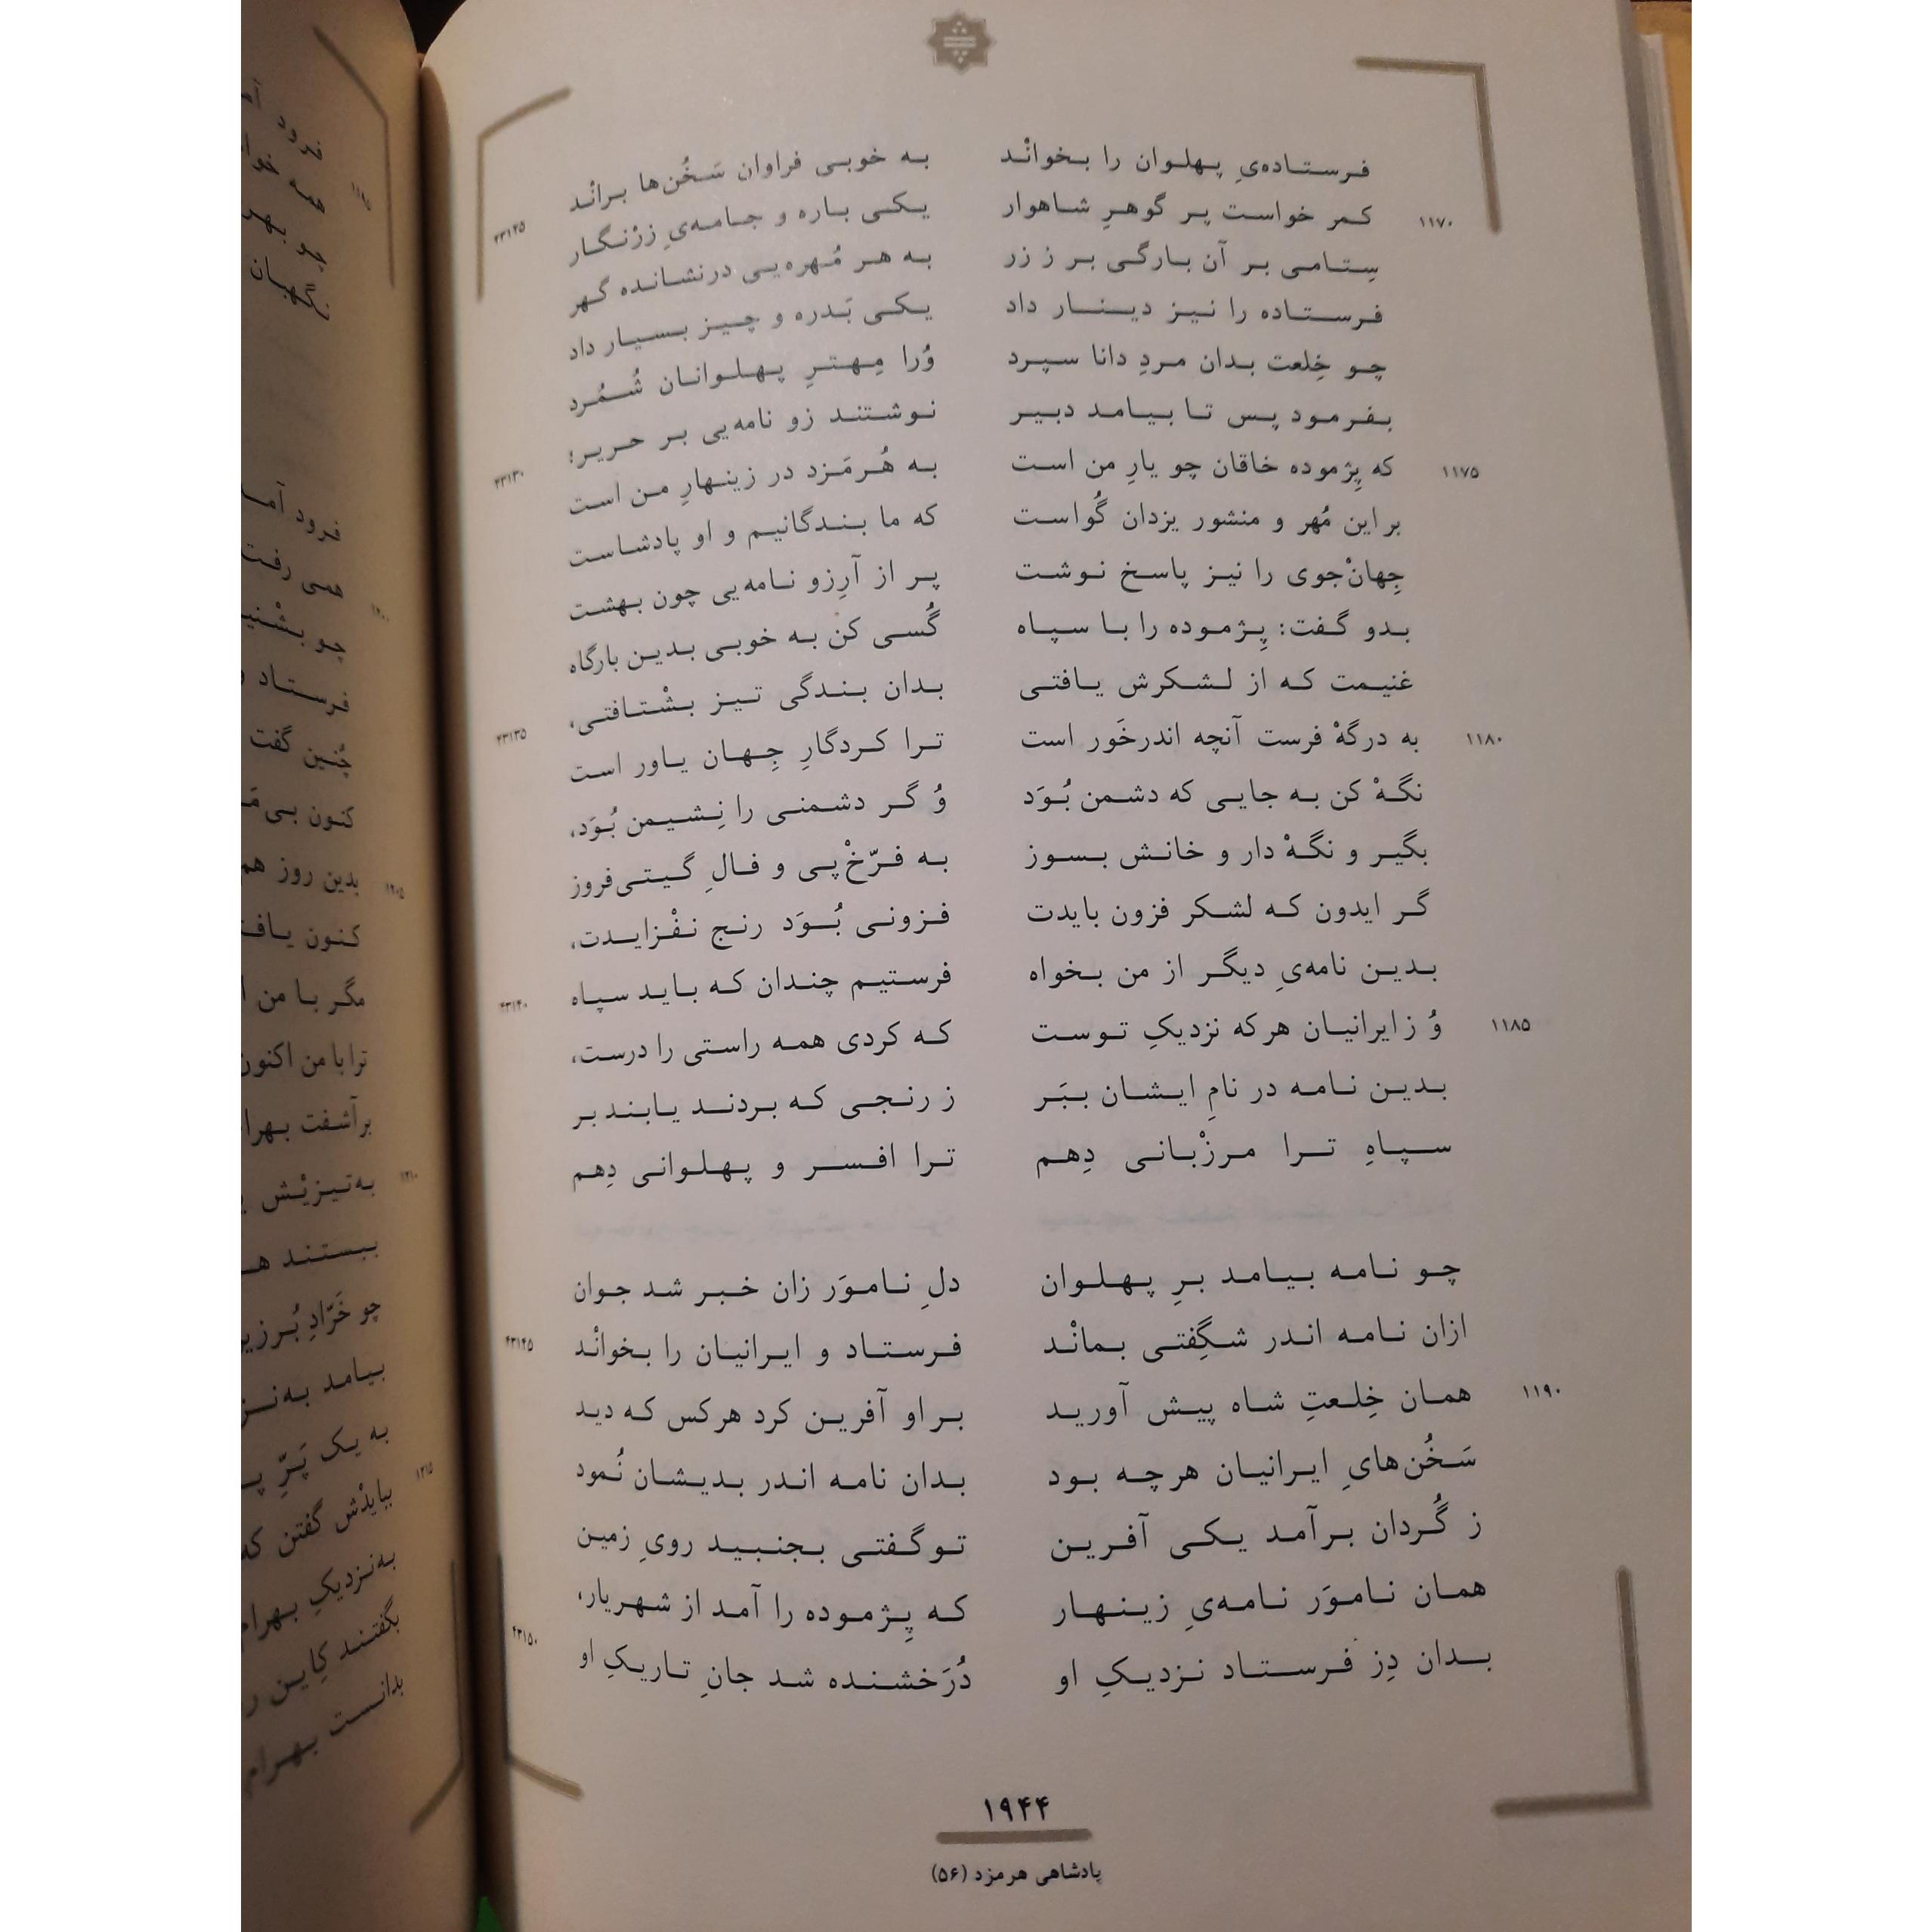 فرستاده‌یِ پهلوان را بخوانْد به خوبی فراوان سَخُن‌ها برانْد
۱۱۷۰ کمر خواست پر گوهرِ شاهوار یکی باره و جامه‌یِ زرْنگار ۴۳۱۲۵
سِتامی بر آن بارگی بر ز زر به هر مُهره‌یی درنشانده گهر
فرستاده را نیز دینار داد یکی بَدره و چیز بسیار داد
چو خِلعت بدان مردِ دانا سپرد وُرا مِهترِ پهلوانان شُمُرد
بفرمود پس تا بیامد دبیر نوشتند زو نامه‌یی بر حریر؛
۱۱۷۵ که پِژموده خاقان چو یارِ من است به هُرمَزد در زینهارِ من است ۴۳۱۳۰
بر این مُهر و منشور یزدان گُواست که ما بندگانیم و او پادشاست
جِهانْ‌جوی را نیز پاسخ نوشت پر از آرِزو نامه‌یی چون بهشت
بدو گفت: پِژموده را با سپاه گُسی کن به خوبی بدین بارگاه
غنیمت که از لشکرش یافتی بدان بندگی تیز بشْتافتی،
۱۱۸۰ به درگهْ فرست آنچه اندرخَور است ترا کردگارِ جِهان یاور است ۴۳۱۳۵
نگهْ کن به جایی که دشمن بُوَد وُ گر دشمنی را نِشیمن بُوَد،
بگیر و نگهْ دار و خانش بسوز به فرّخْ‌پی و فالِ گیتی‌فروز
گر ایدون که لشکر فزون بایدت فزونی بُوَد رنج نفْزایدت،
بدین نامه‌یِ دیگر از من بخواه فرستیم چندان که باید سپاه ۴۳۱۴۰
۱۱۸۵ وُ ز ایرانیان هرکه نزدیکِ توست که کردی همه راستی را درست،
بدین نامه در نامِ ایشان ببَر ز رنجی که بردند یابند بر
سپاهِ ترا مرزْبانی دِهم ترا افسر و پهلوانی دِهم
چو نامه بیامد برِ پهلوان دلِ نامَوَر زان خبر شد جوان
ازان نامه اندر شگِفتی بمانْد فرستاد و ایرانیان را بخوانْد ۴۳۱۴۵
۱۱۹۰ همان خِلعتِ شاه پیش آورید بر او آفرین کرد هرکس که دید
سَخُن‌هایِ ایرانیان هرچه بود بدان نامه اندر بدیشان نُمود
ز گُردان برآمد یکی آفرین تو گفتی بجنبید رویِ زمین
همان نامَوَر نامه‌یِ زینهار که پِژموده را آمد از شهریار،
بدان دِز فرستاد نزدیکِ او دُرَخشنده شد جانِ تاریکِ او ۴۳۱۵۰
۱۹۴۴
پادشاهی هرمزد (۵۶)
فرود
همه
چو
نگهبان
فرود
همی رفت
۱۲۰۰
چو
فرستاد
چُنین گفت
کنون
بدین روز
۱۲۰۵
کنون
مگر با من
ترا با من اکنون
برآشفت
۱۲۱۰
به‌تیزیْش
ببستند
چو خَرّادِ
بیامد
به یک پَرِّ
۱۲۱۵
ببایدْش گفتن
به‌نزدیکِ بهرام
بگفتند کِاین
بدانست بهرام